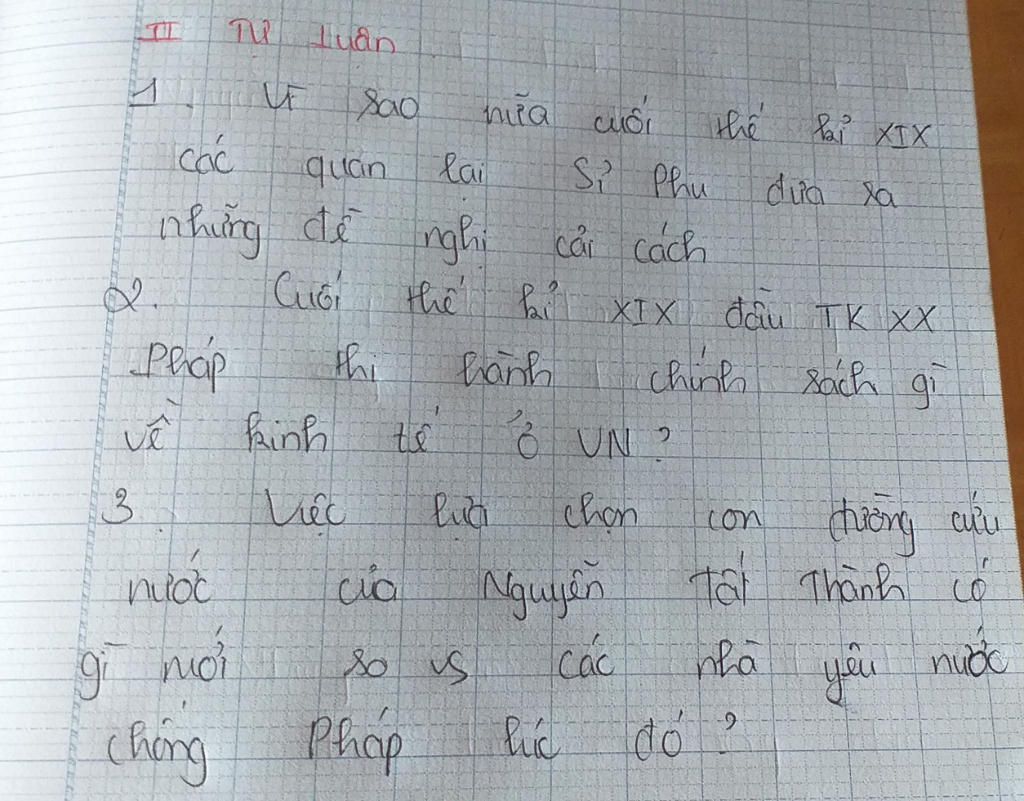 II Tự luận
1. Vì sao nửa cuối thế kỉ XIX
các quan lại sĩ phu đưa ra
những đề nghị cải cách
2. Cuối thế kỉ XIX đầu TK XX
Pháp thi hành chính sách gì
về kinh tế ở VN?
3. Việc lựa chọn con đường cứu
nước của Nguyễn Tất Thành có
gì mới so vs các nhà yêu nước
chống Pháp lúc đó?